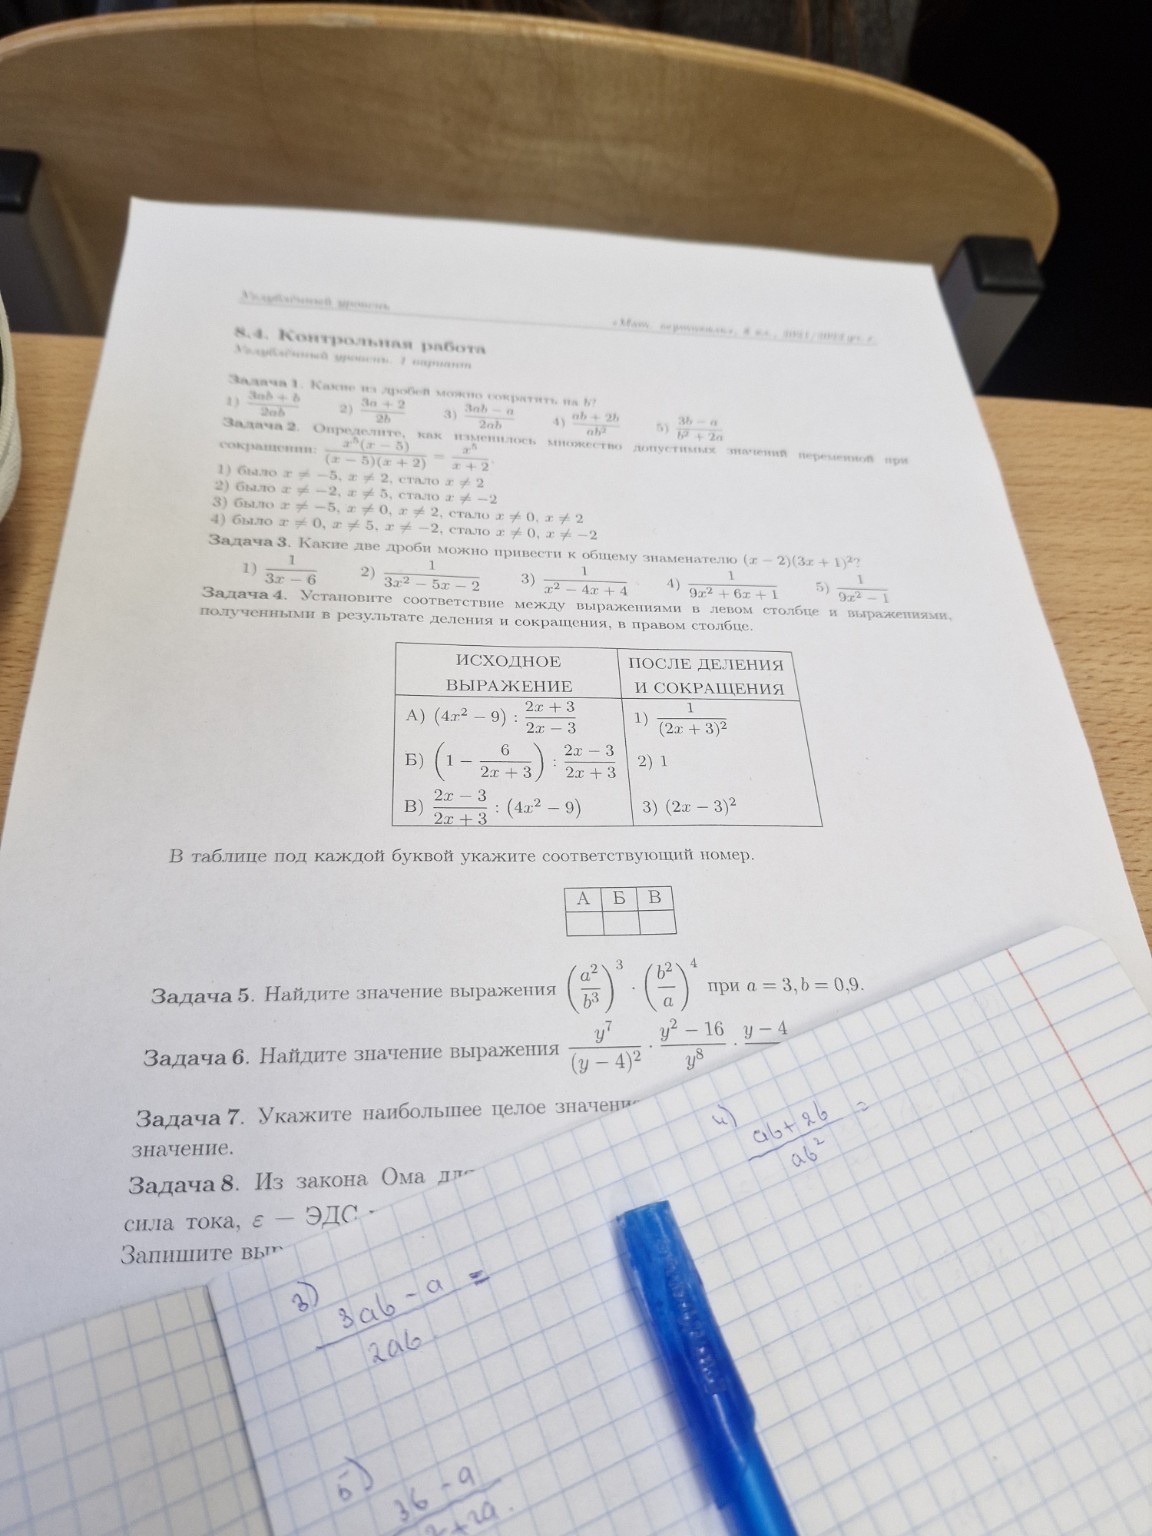 Углублённый уровень
«Мат. вертикаль», 8 кл., 2021/2022 уч. г.
8.4. Контрольная работа
Углублённый уровень. 1 вариант
Задача 1. Какие из дробей можно сократить на b?
1) (3ab + b)/(2ab) 2) (3a + 2)/(2b) 3) (3ab − a)/(2ab) 4) (ab + 2b)/(ab²) 5) (3b − a)/(b² + 2a)
Задача 2. Определите, как изменилось множество допустимых значений переменной при
сокращении: (x⁵(x − 5))/((x − 5)(x + 2)) = x⁵/(x + 2).
1) было x ≠ −5, x ≠ 2, стало x ≠ 2
2) было x ≠ −2, x ≠ 5, стало x ≠ −2
3) было x ≠ −5, x ≠ 0, x ≠ 2, стало x ≠ 0, x ≠ 2
4) было x ≠ 0, x ≠ 5, x ≠ −2, стало x ≠ 0, x ≠ −2
Задача 3. Какие две дроби можно привести к общему знаменателю (x − 2)(3x + 1)²?
1) 1/(3x − 6) 2) 1/(3x² − 5x − 2) 3) 1/(x² − 4x + 4) 4) 1/(9x² + 6x + 1) 5) 1/(9x² − 1)
Задача 4. Установите соответствие между выражениями в левом столбце и выражениями,
полученными в результате деления и сокращения, в правом столбце.
ИСХОДНОЕ ПОСЛЕ ДЕЛЕНИЯ
ВЫРАЖЕНИЕ И СОКРАЩЕНИЯ
А) (4x² − 9) : (2x + 3)/(2x − 3) 1) 1/(2x + 3)²
Б) (1 − 6/(2x + 3)) : (2x − 3)/(2x + 3) 2) 1
В) (2x − 3)/(2x + 3) : (4x² − 9) 3) (2x − 3)²
В таблице под каждой буквой укажите соответствующий номер.
А Б В
Задача 5. Найдите значение выражения (a²/b³)³ · (b²/a)⁴ при a = 3, b = 0,9.
Задача 6. Найдите значение выражения y⁷/(y − 4)² · (y² − 16)/y⁸ · y − 4
Задача 7. Укажите наибольшее целое
значение.
Задача 8. Из закона Ома
сила тока, ε — ЭДС
Запишите
4) (ab + 2b)/(ab²) =
3) (3ab − a)/(2ab) =
5) 3b − a
2 + 2a.